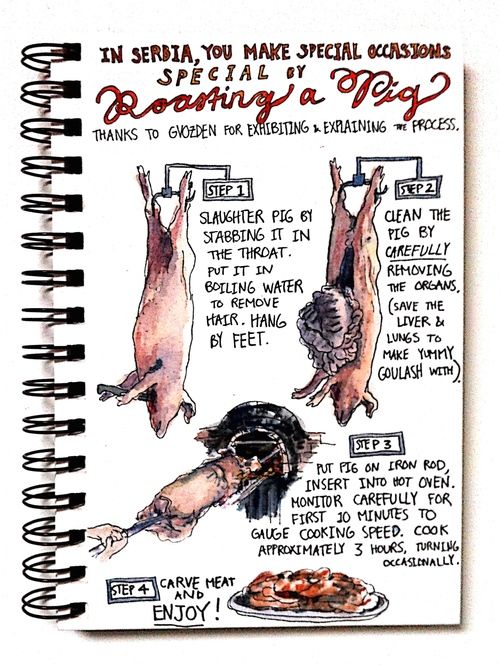 IN SERBIA, YOU MAKE SPECIAL OCCASIONS
SPECIAL BY
Roasting a Pig
THANKS TO GVOZDEN FOR EXHIBITING & EXPLAINING THE PROCESS.
STEP 1
SLAUGHTER PIG BY
STABBING IT IN
THE THROAT.
PUT IT IN
BOILING WATER
TO REMOVE
HAIR. HANG
BY FEET.
STEP 2
CLEAN THE
PIG BY
CAREFULLY
REMOVING
THE ORGANS.
(SAVE THE
LIVER &
LUNGS TO
MAKE YUMMY
GOULASH WITH).
STEP 3
PUT PIG ON IRON ROD,
INSERT INTO HOT OVEN.
MONITOR CAREFULLY FOR
FIRST 10 MINUTES TO
GAUGE COOKING SPEED. COOK
APPROXIMATELY 3 HOURS, TURNING
OCCASIONALLY.
STEP 4
CARVE MEAT
AND
ENJOY!